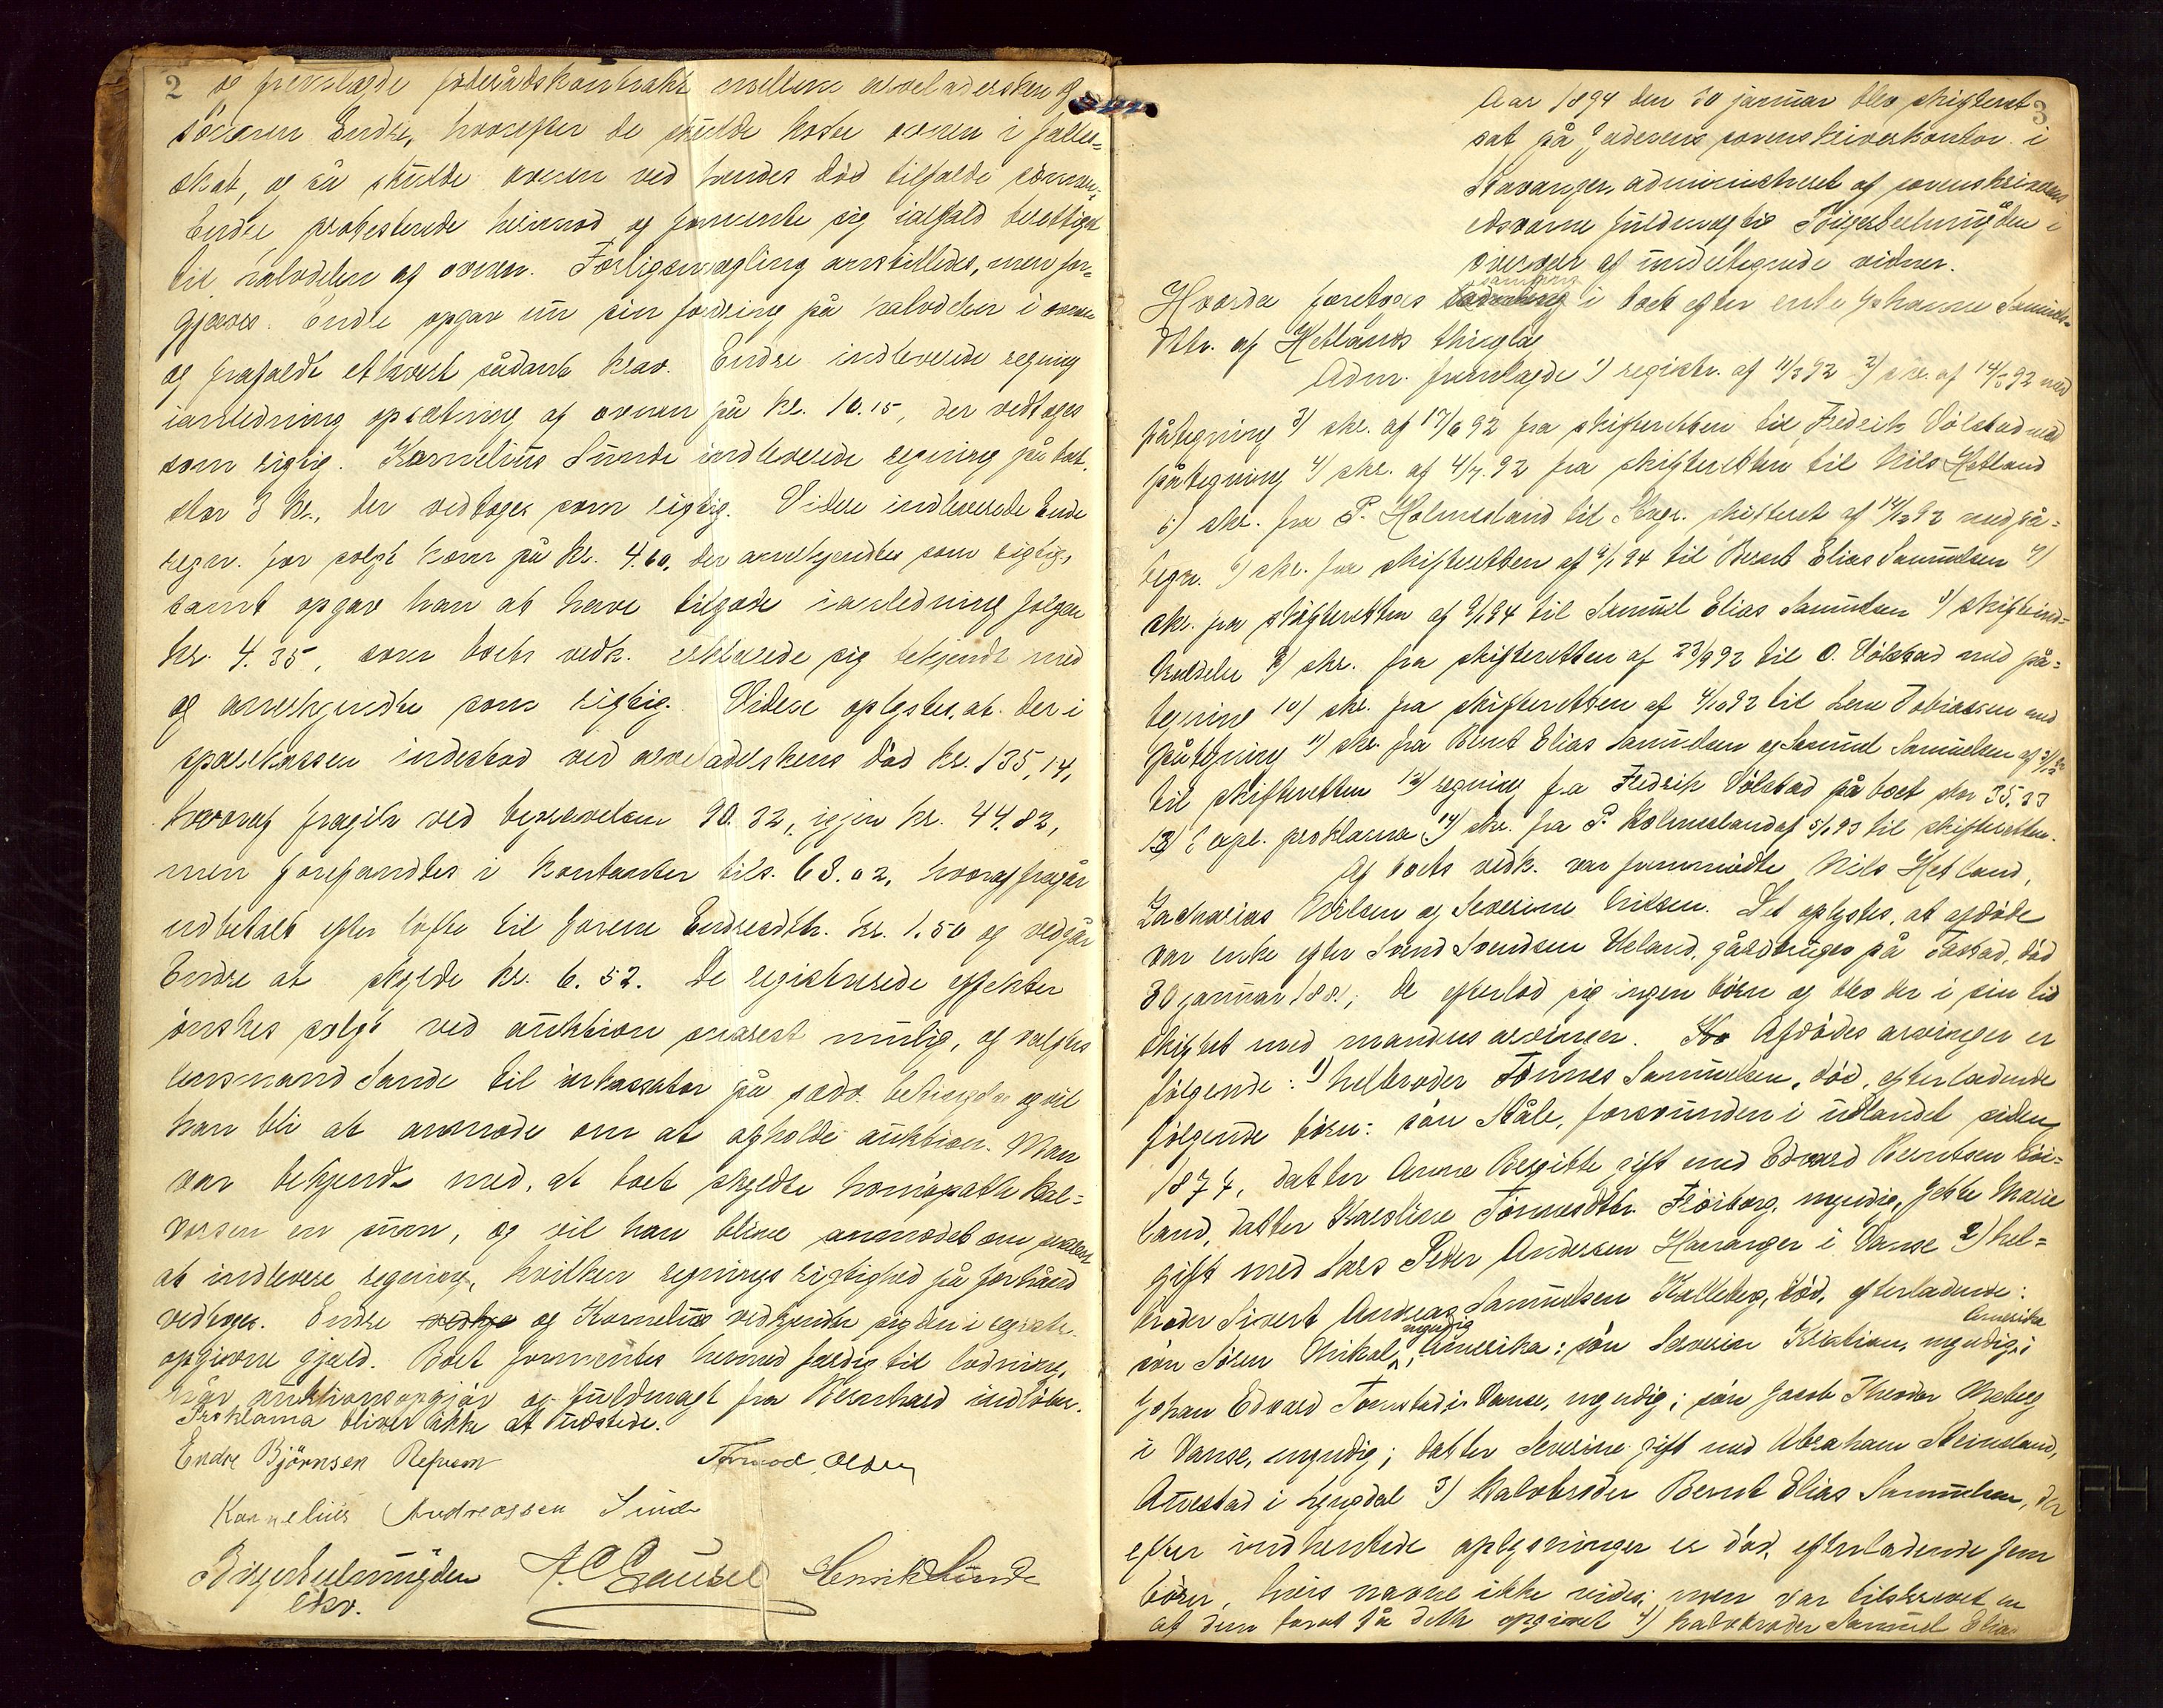 2 og fremlagde föderådskontrakt mellem arveladersken og
sönnen Endre, hvorefter de skulde koste ovnen i fælles-
skab, og så skulde ovnen ved hendes död tilfalde sönnen.
Endre protesterede herimod og formente sig ialfald berettiget
til halvdelen af ovnen. Forligsmægling anstilledes, men for-
gjæves. Endre opgav nu sin fordring på halvdelen i ovnen
og frafaldt ethvert sådant krav. Endre indleverede regning
ianledning opsætning af ovnen på kr. 10.15, der vedtoges
som rigtig. Kornelius Sunde indleverede regning på boet,
stor 3 kr., der vedtoges som rigtig. Videre indleverede Endre
regn. for solgt korn på kr. 4.60, der anerkjendtes som rigtig,
samt opgav han at have tilgode ianledning
kr. 4.35, som boets vedk. erklærede sig bekjendt med
og anerkjendte som rigtig. Videre oplystes, at der i
sparekassen indestod ved arveladerskens död kr. 135,14,
hvoraf fragik ved begravelsen 90.32, igjen kr. 44.82,
men forefandtes i kontanter tils. 68.02, hvoraf fragår
udbetalt efter löfte til Endresdtr. kr. 1.50 og vedgår
Endre at skylde kr. 6.52. De registrerede effekter
önskes solgt ved auktion snarest mulig, og valgtes
lensmand Sande til inkassator på sædv. betingelser og vil
han bli at anmode om at afholde auktion. Man
var bekjendt med, at boet skyldte homöopath Hal-
vorsen en sum, og vil han blive anmodet om snarest
at indlevere regning, hvilken regnings rigtighed på forhånd
vedtoges. Endre vedkje og Kornelius vedkjendte sig den i registr.
opgivne gjæld. Boet formentes hermed færdig til lodning,
når auktionsopgjör og fuldmagt fra Bernhard indlöber.
Proklama bliver ikke at udstede.
Endre Björnsen Refsum Tormod Olsen
Kornelius Andreassen Sunde
Birger Helmuyden A. C. Gausel Henrik Sunde
edsv.
3
Aar 1894 den 30 januar blev skifteret
sat på Jæderens sorenskriverkontor i
Stavanger, administreret af sorenskriverens
edsvorne fuldmægtig Birger Helmuyden i
overvær af undertegnede vidner.
Hvorda foretoges samling i boet efter enke Johanne Samuels-
dtr. af Hetlands thinglag
Adm. fremlagde 1) registr. af 11/3 92 2) skr. af 14/5 92 med
påtegning 3) skr. af 17/6 92 fra skifteretten til Fredrik Völstad med
påtegning 4) skr. af 4/7. 92 fra skifteretten til Nils Hetland
5) skr. fra P. Holmesland til skifteret af 14/12 92 med på-
tegn. 6) skr. fra skifteretten af 9/1 94 til Bernt Elias Samuelsen 7)
skr. fra skifteretten af 9/1 94 til Samuel Elias Samuelsen 8) skifteind-
kaldelse 9) skr. fra skifteretten af 23/9 92 til O. Völstad med på-
tegning 10) skr. fra skifteretten af 4/10 92 til Lene Tobiassen med
påtegning 11) skr. fra Bernt Elias Samuelsen og Samuel Samuelsen af
til skifteretten 12) regning fra Fredrik Völstad på boet stor 35.33
13) 3 expl. proklama 14) skr. fra P. Holmesland af 5/1 93 til skifteretten.
Af boets vedk. var fremmödte Nils Hetland,
Zacharias Nilsen og Severine Nilsen. Det oplystes, at afdöde
var enke efter Svend Svendsen Ueland, gårdbruger på Tastad, död
30 januar 1881; de efterlod sig ingen börn og blev der i sin tid
skiftet med mandens arvinger. Ho Afdödes arvinger er
fölgende: 1) helbroder Tönnes Samuelsen, död, efterladende
fölgende börn: sön Ståle, forsvunden i udlandet siden
1874, datter Anne Bergitte gift med Edvard Berntsen
land, datter Karoline Tönnesdtr. Fröiborg, myndig, Jette Marie
gift med Lars Peter Andersen Havanger i Vanse 2) hel-
broder Sivert Andreas Samuelsen Kalleberg, död, efterladende:
sön Sören Mikal, myndig, Amerika; sön Severin Kristian, myndig, i Amerika
Johan Edvard Tomstad i Vanse, myndig; sön Jacob Theodor
i Vanse, myndig; datter Severine gift med Abraham Steinsland,
Aunestad i Lyngdal 3) Halvbroder Bernt Elias Samuelsen, der
efter indhentede oplysninger er död, efterladende fem
börn, hvis navne ikke vides, men var tilskrevet en
af dem forat få dette opgivet 4) halvbroder Samuel Elias